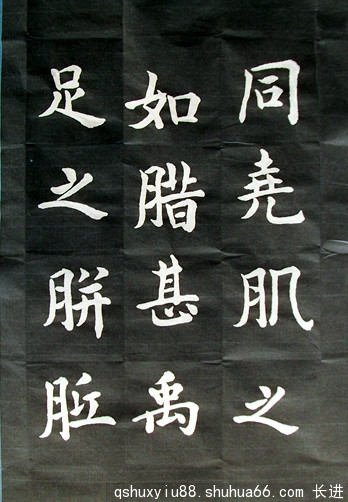 同堯肌之
如腊甚禹
足之胼胝
qshuxyiu88.shuhua66.com 长进